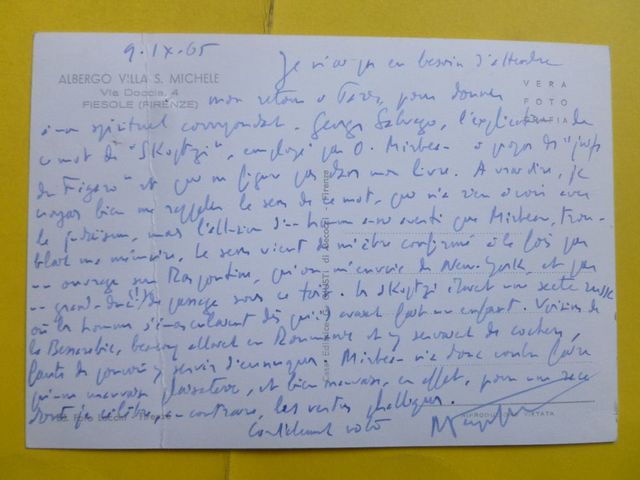 9.IX.65
ALBERGO VILLA S. MICHELE
Via Doccia, 4
FIESOLE (FIRENZE)
VERA
FOTO
GRAFIA
Je n'ai pas eu besoin d'attendre
mon retour à Paris, pour donner
à mon spirituel correspondant, George Salvago, l'explication du
mot de "SKoptzi", employé par O. Mirbeau à propos des "juifs
du Figaro" et qui ne figure pas dans mon livre. A vrai dire, je
croyais bien me rappeler le sens de ce mot, qui n'a rien à voir avec
le judaïsme, mais l'allusion d'un homme aussi averti que Mirbeau, trou-
blait ma mémoire. Le sens vient de m'être confirmé à la fois par
un ouvrage sur Raspoutine, qu'on m'envoie de New-York, et par
un grand-duc (!) de passage sous ce toit. Les SKoptzi étaient une secte russe
où les hommes s'émasculaient dès qu'ils avaient fait un enfant. Voisins de
la Bessarabie, beaucoup allaient en Roumanie et y servaient de cochers,
faute de pouvoir y servir d'eunuques. Mirbeau n'a donc voulu faire
qu'une mauvaise plaisanterie, et bien mauvaise, en effet, pour une race
dont je célèbre, au contraire, les vertus phalliques.
Cordialement vôtre
RIPRODUZIONE VIETATA